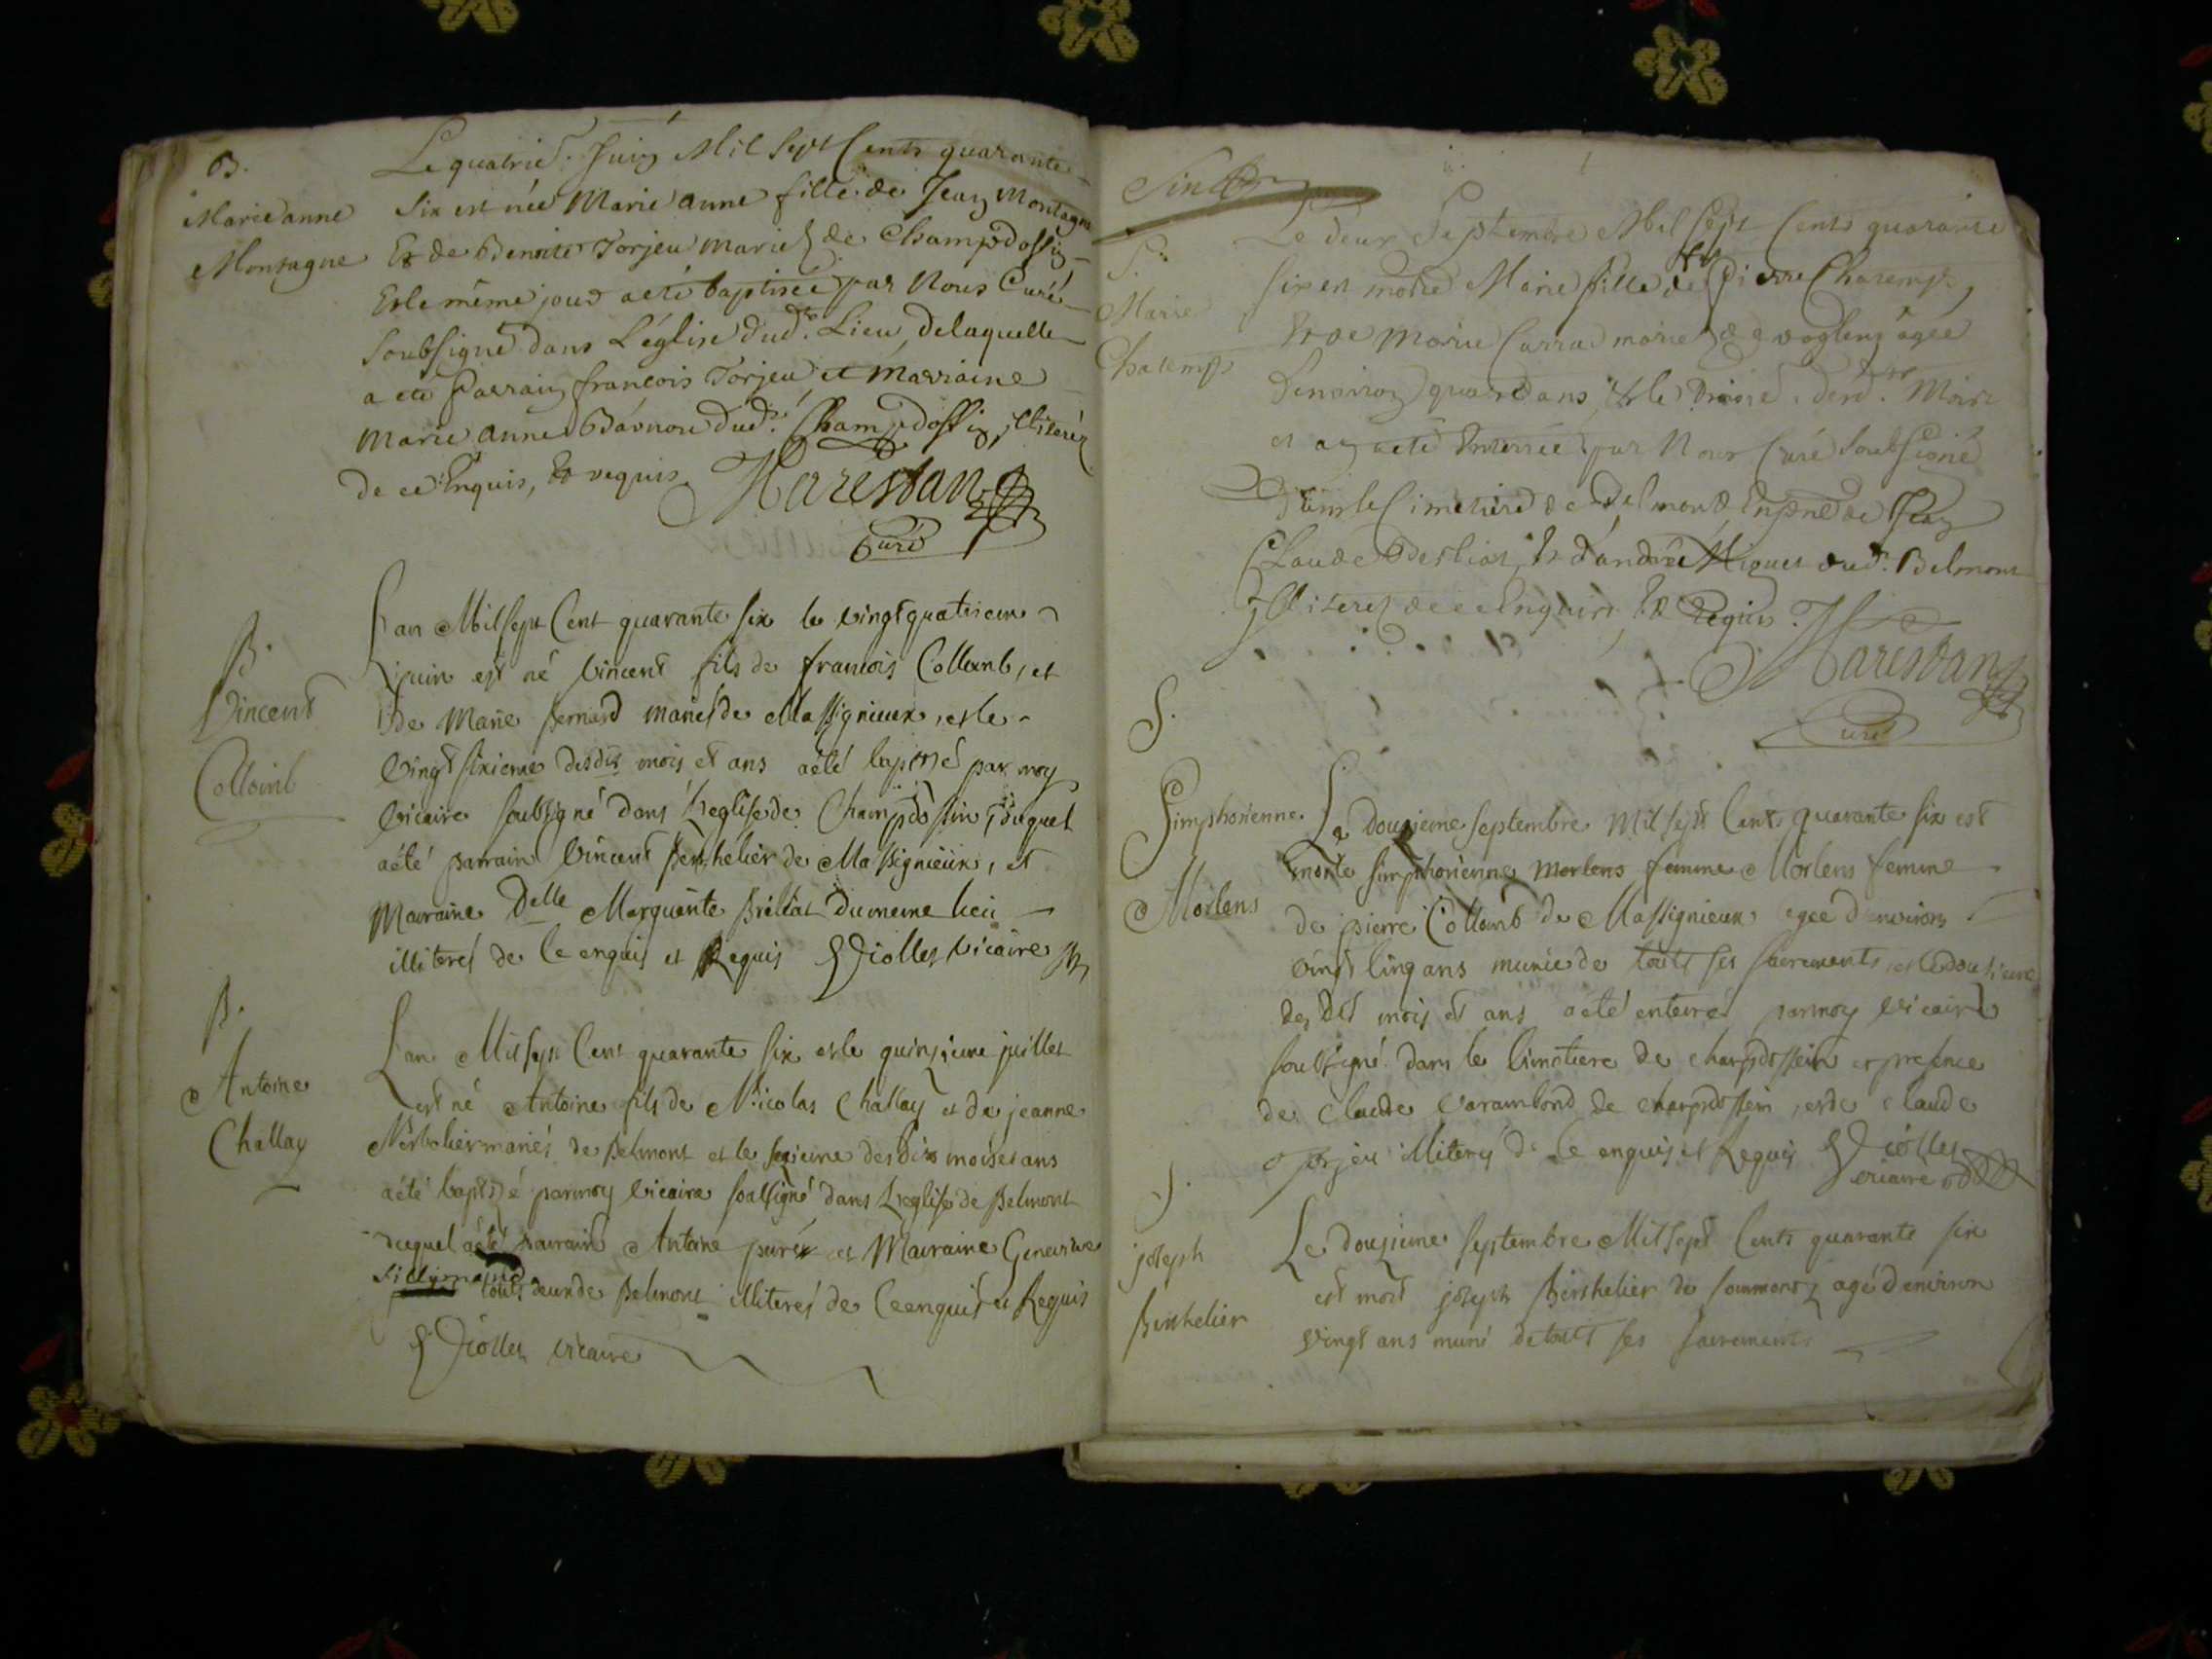 B.
Marie anne
Montagne
Le quatrie. Juin Mil Sept Cents quarante
Six est née Marie anne fille de Jean Montagne
Et de Benoite Torjeu mariez de Champdossin
Et le même jour a eté baptisée par Nous Curé
Soubsigné dans L'église dud. Lieu, de laquelle
a eté Parrain francois Torjeu et Marraine
Marie anne dud. Champdossin, illiterez
de ce Enquis, Et requis. Harestan
Curé
B.
Vincent
Colloinb
Lan Mil sept Cent quarante six le vingt quatrieme
juin est né vincent fils de francois Collomb, et
de Marie Bernard mariés de Massignieux, et le
vingt sixieme desdis mois et ans a été baptisé par moy
vicaire soubsigné dans Leglise de Champdossin, duquel
a été parrain vincent Berthelier de Massignieux, et
Maraine Delle Marguerite du meme lieu
illiteres de Ce enquis et Requis Violles vicaire
B.
Antoine
Challay
Lan Mil sept Cent quarante six et le quinzieme juillet
est né Antoine fils de Nicolas Challay et de jeanne
mariés de Belmont et le sezieme desdis mois et ans
a été baptisé par moy vicaire soubsigné dans Leglise de Belmont
duquel a été parrain Antoine et Maraine Genevieve
touts deux de Belmont illiterés de Ce enquis et Requis
Violles vicaire
S.
Marie
Charemps
Le deux Septembre Mil Sept Cents quarante
Six est morte Marie fille de Pierre Charemps,
Et de Marie Carra mariez de voglens âgée
Denviron quatre ans, Et le troisie. desd. Mois
et an a eté Enterrée par Nous Curé Soubsigné
dans le Cimetiere de Belmont En pnce de Jean
Claude Berliat, Et d'andré Miquet dud. Belmont
Illiterez de ce Enquis, Et Requis. Harestan
Curé
S.
Simphorienne
Morlens
Le douzieme septembre Mil sept Cents quarante six est
morte simphorienne Morlens femme Morlens femme
de pierre Colloinb de Massignieux agée d'environ
vingt cinq ans munie de touts ses sacrements et le douzieme
des dits mois et ans a été enterré par moy vicaire
soubsigné dans le Cimetiere de champdossin et presence
de Claude varambond de champdossin, et de Claude
torjeu illiterés de Ce enquis et Requis Violles
vicaire
S.
joseph
Berthelier
Le douzieme septembre Mil sept Cents quarante six
est mort joseph Berthelier de sommont agé d'environ
vingt ans muni de touts ses sacrements